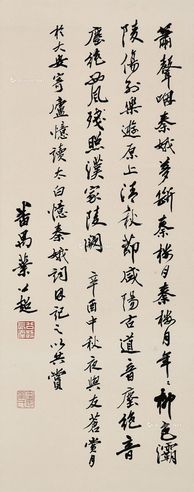 蕭聲咽秦娥夢斷秦樓月秦樓月年々柳色灞
陵傷別樂遊原上清秋節咸陽古道音塵絕音
塵絕西風殘照漢家陵闕 辛酉中秋夜與友蒼賞月
於大安寄廬憶讀太白憶秦娥詞因記之以共賞
番禺葉公超